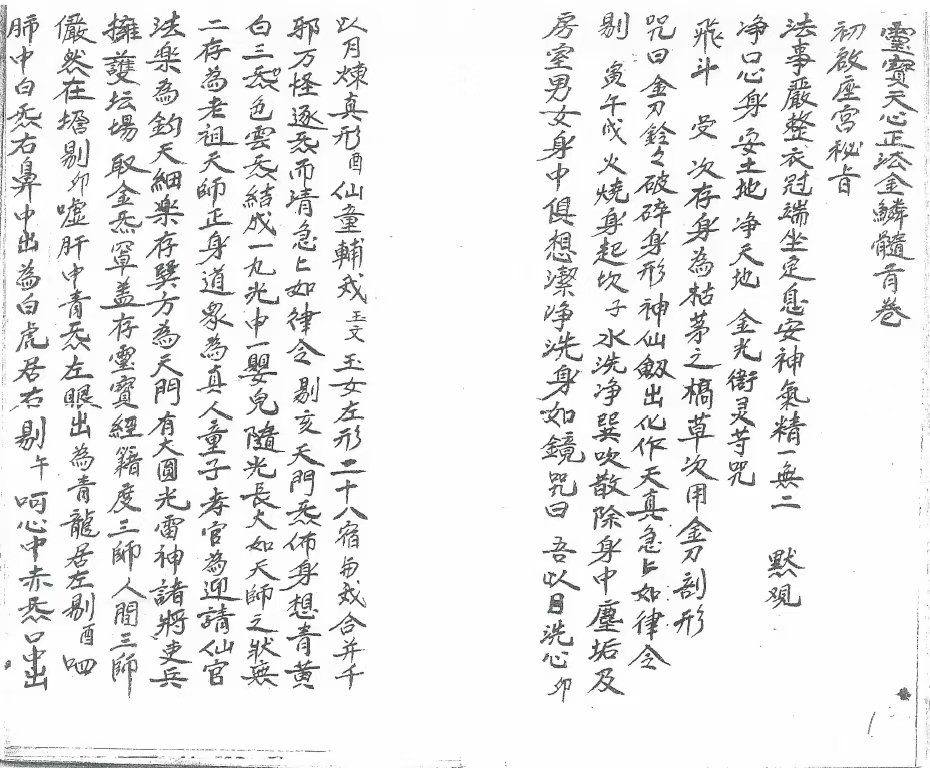 靈寶天心正法金鱗髓首卷
初啟座宮秘旨
法事嚴整衣冠端坐定息安神氣精一無二　默观
净口心身　安土地　净天地　金光衛灵等咒
飛斗　受　次存身為枯茅之槁草次用金刀剖形
咒曰金刀鈴々破碎身形神仙劔出化作天真急上如律令
剔　寅午戌火燒身起坎子水洗净巽吹散除身中塵垢及
房室男女身中俱想潔净洗身如鏡咒曰　吾以日洗心卯
以月煉真形酉仙童輔我玉文玉女左形二十八宿與我合并千
邪万怪逐炁而清急上如律令剔亥天門炁佈身想青黃
白三炁色雲炁結成一丸光中一嬰兒隨光長大如天師之狀無
二存為老祖天師正身道眾為真人童子孝官為迎請仙官
法樂為鈞天細樂存巽方為天門有大圓光雷神諸將吏兵
擁護坛場取金炁罩盖存靈寶經籍度三師人間三師
儼然在壇剔卯噓肝中青炁左眼出為青龍居左剔酉呬
肺中白炁右鼻中出為白虎居右剔午呵心中赤炁口中出
1